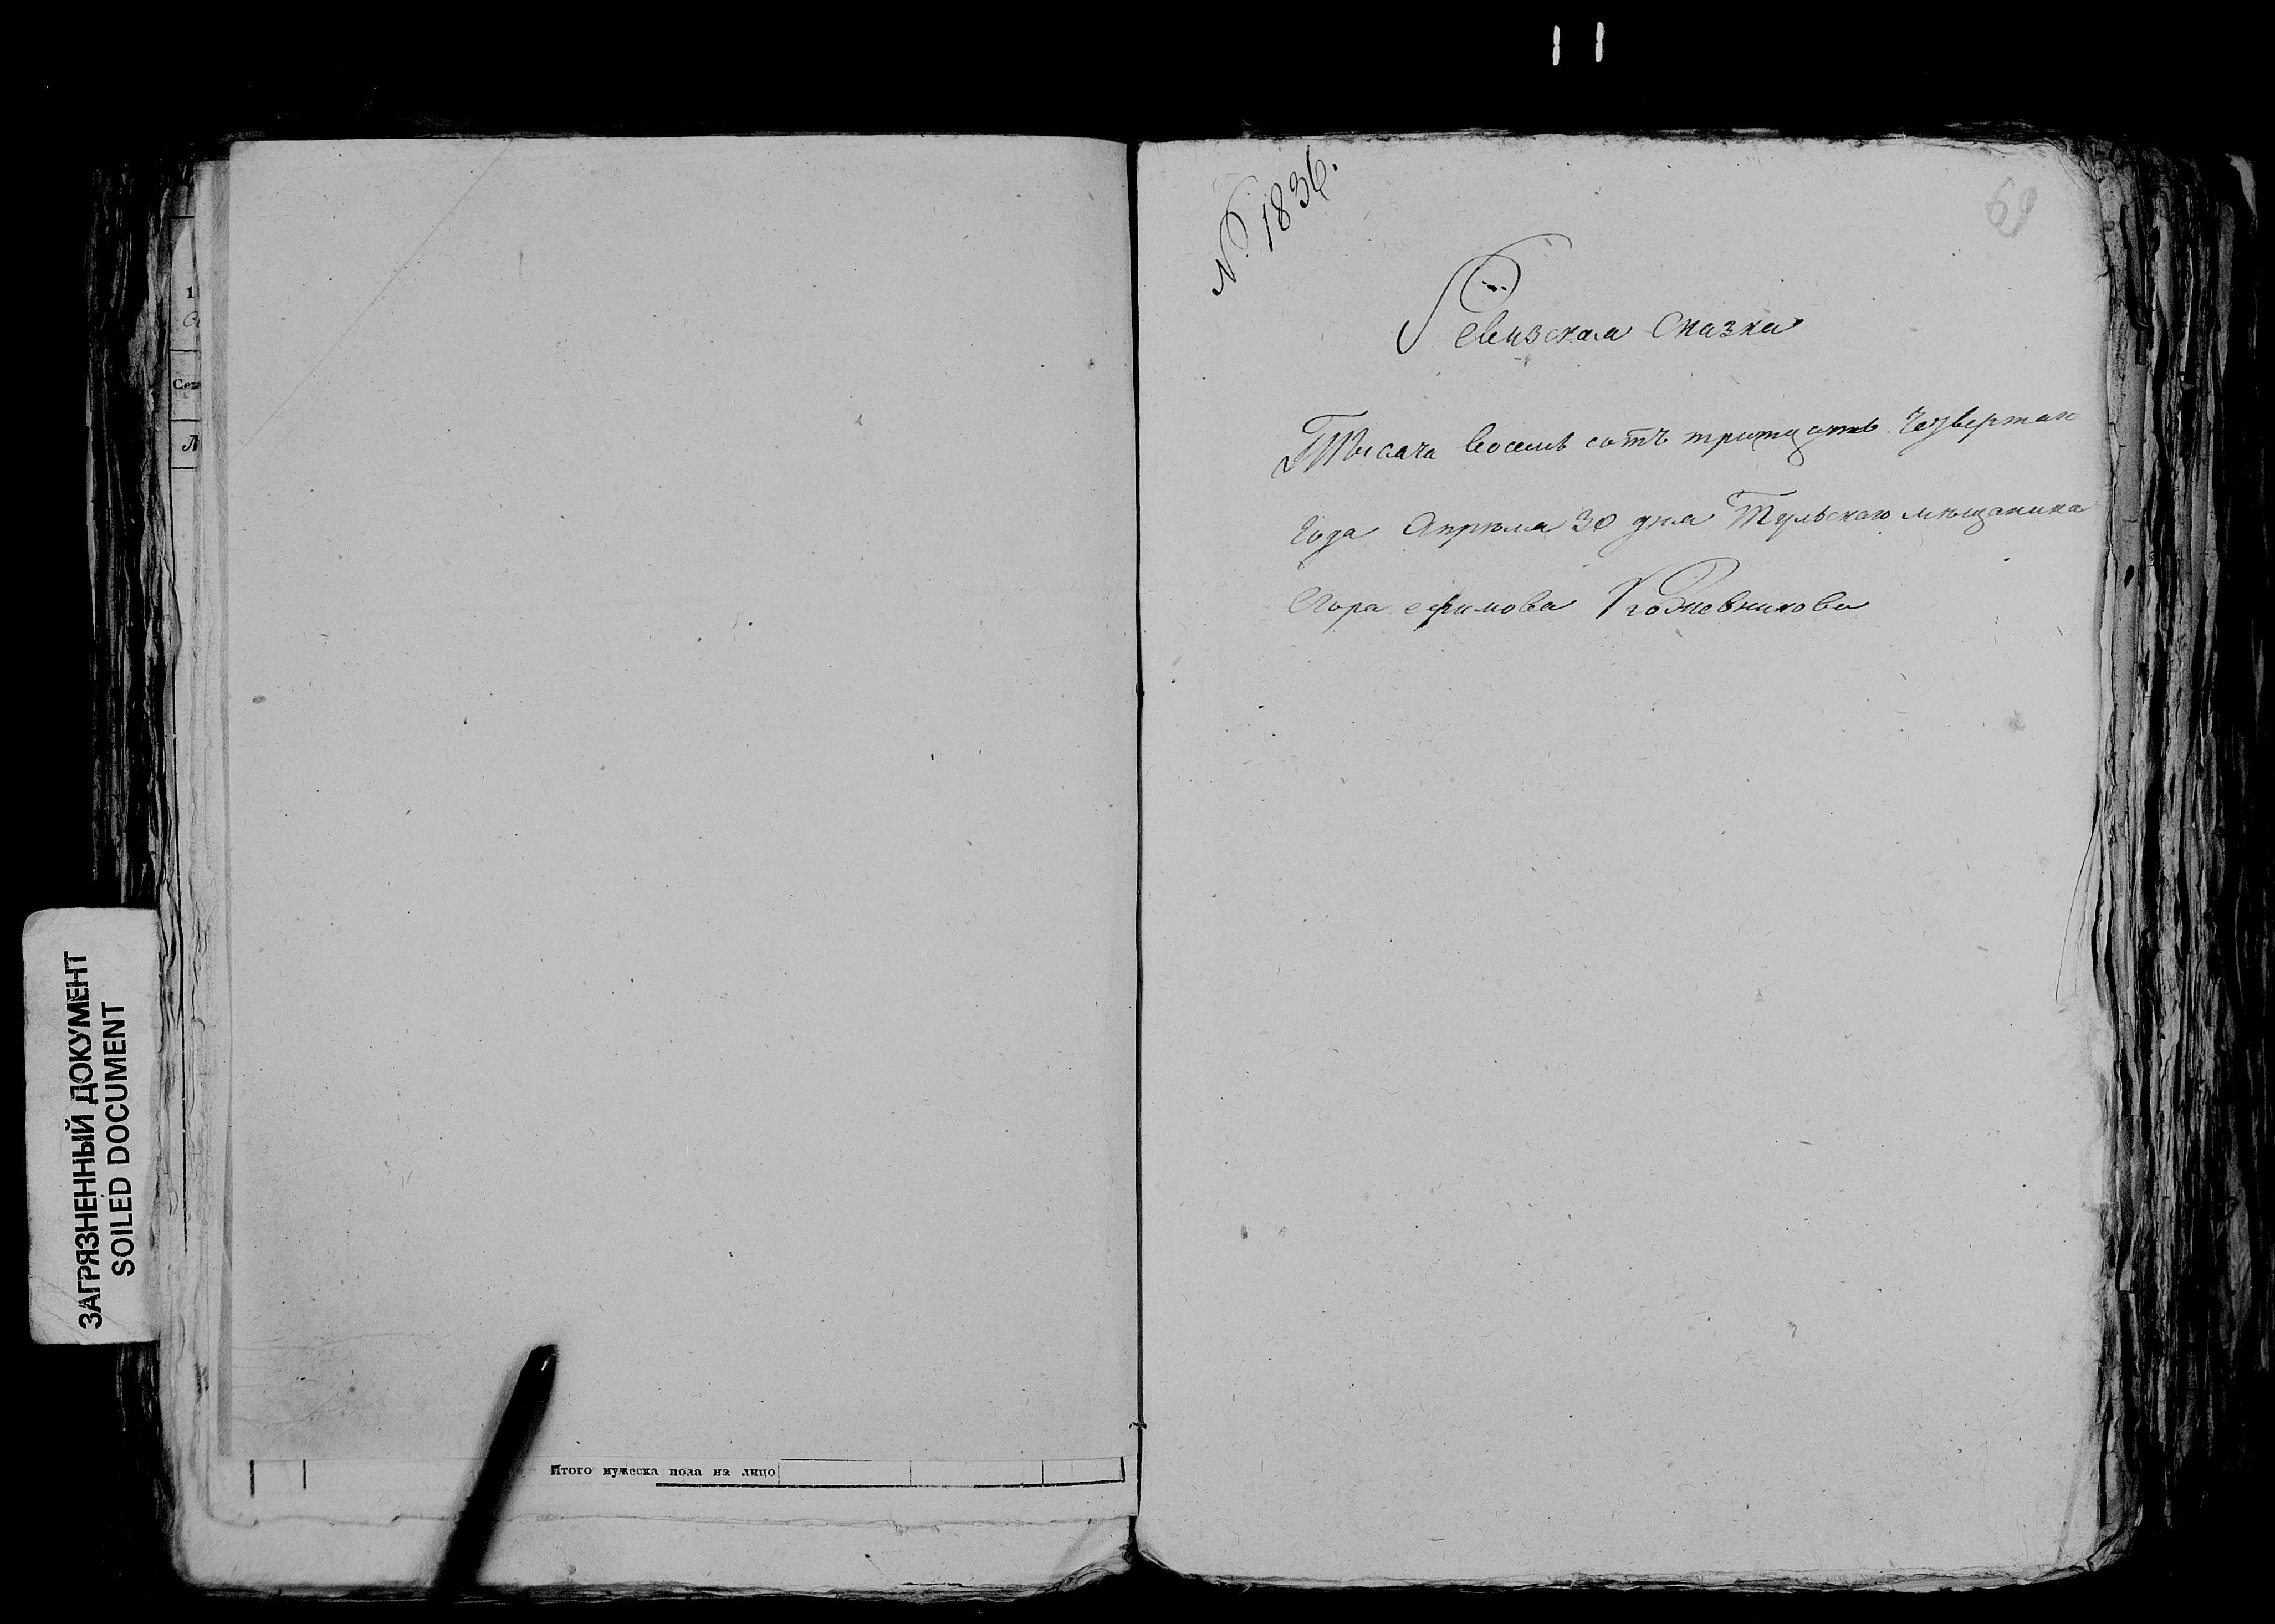 № 1836.
69
Ревизская Сказка
Тысяча восемь сотъ тритцать четвертаго
Года Апреля 30 дня Тульскаго мещанина
ефимова Кожевникова
Итого мужеска пола на лицо
ЗАГРЯЗНЕННЫЙ ДОКУМЕНТ
SOILED DOCUMENT